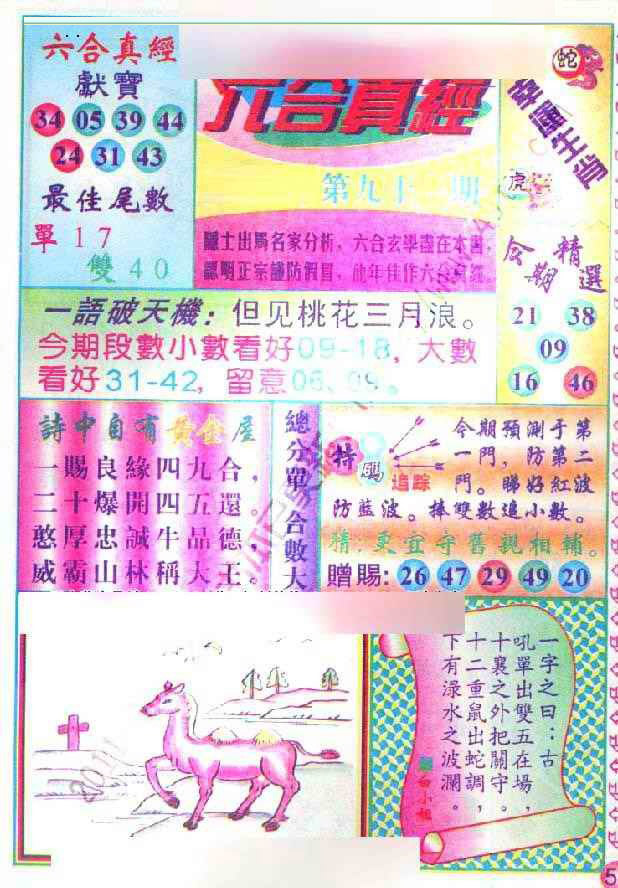 六合真經
獻寶
34 05 39 44
24 31 43
最佳尾數
單17
雙40
六合真經
第九十一期
隱士出馬名家分析，六合玄學盡在本圖，
認明正宗謹防假冒，他年佳作六合真經。
蛇
虎
幸運生肖
今期精選
21 38
09
16 46
一語破天機：但见桃花三月浪。
今期段數小數看好09-18，大數
看好31-42，留意06、09。
詩中自有黃金屋
一賜良緣四九合，
二十爆開四五還。
憨厚忠誠牛品德，
威霸山林稱大王。
總分單 合數大
特碼
追踪
今期預測于第
一門，防第二
門。睇好紅波
防藍波。捧雙數追小數。
精：更宜守舊親相輔。
贈賜：26 47 29 49 20
一字之曰：古
吼單出雙五在場，
十襄之外把關守。
十二重鼠出蛇調，
下有淥水之波瀾。
白小姐
5